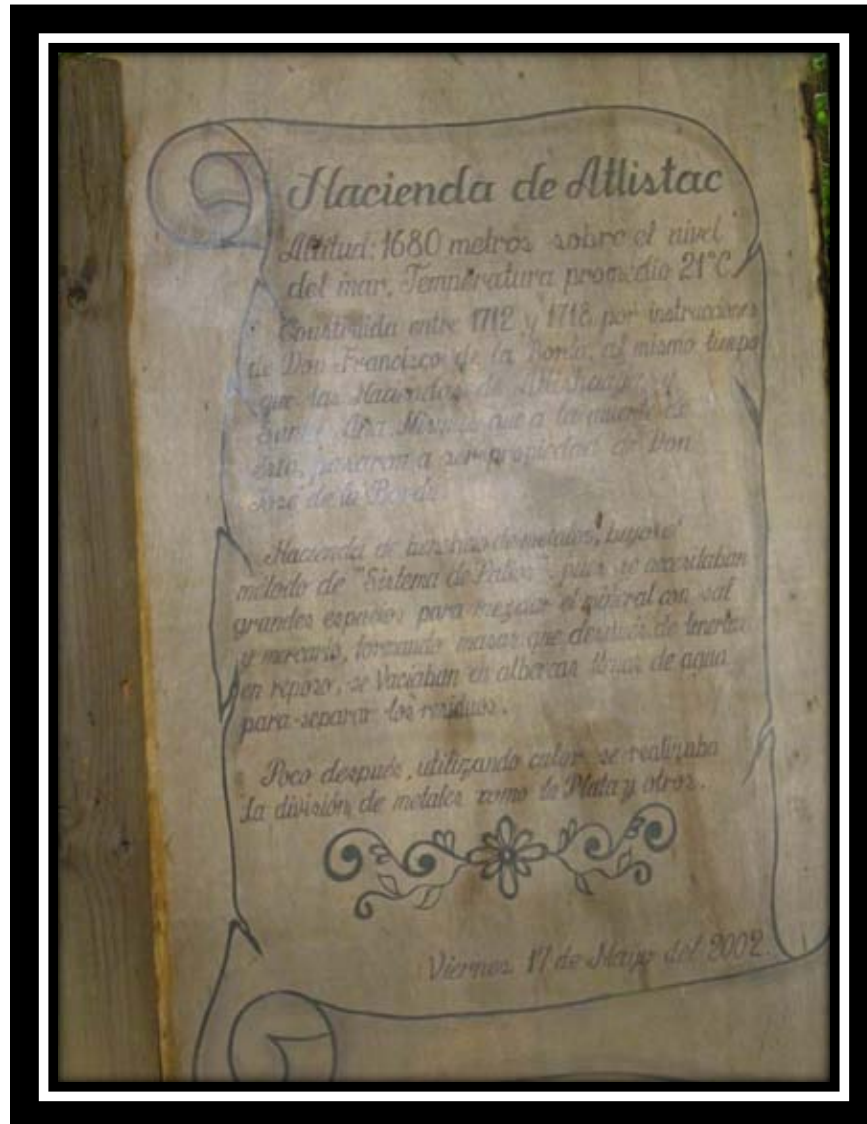 Hacienda de Atlistac
Altitud: 1680 metros sobre el nivel
del mar, Temperatura promedio 21°C
Construida entre 1712 y 1718 por instrucciones
de Don Francisco de la Borda, al mismo tiempo
que las Haciendas de y
Santa Ana. Mismas que a la muerte de
este, pasaron a ser propiedad de Don
José de la Borda.
Hacienda de beneficio de metales, bajo el
método de "Sistema de Patios", pues se necesitaban
grandes espacios para mezclar el mineral con sal
y mercurio, formando masas que después de tenerlas
en reposo, se Vaciaban en albercas llenas de agua
para separar los residuos.
Poco después, utilizando calor se realizaba
la división de metales como la Plata y otros.
Viernes 17 de Mayo del 2002.